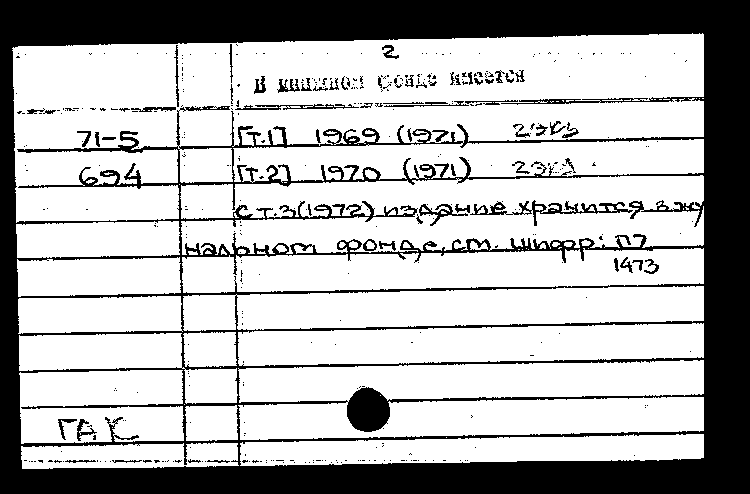 2
В книжном фонде имеется
71-5 [т.1] 1969 (1971) 2 экз
694 [т.2] 1970 (1971) 2 экз
с т.3(1972) издание хранится в жу
нальном фонде, см. шифр: П7
1473
ГАК